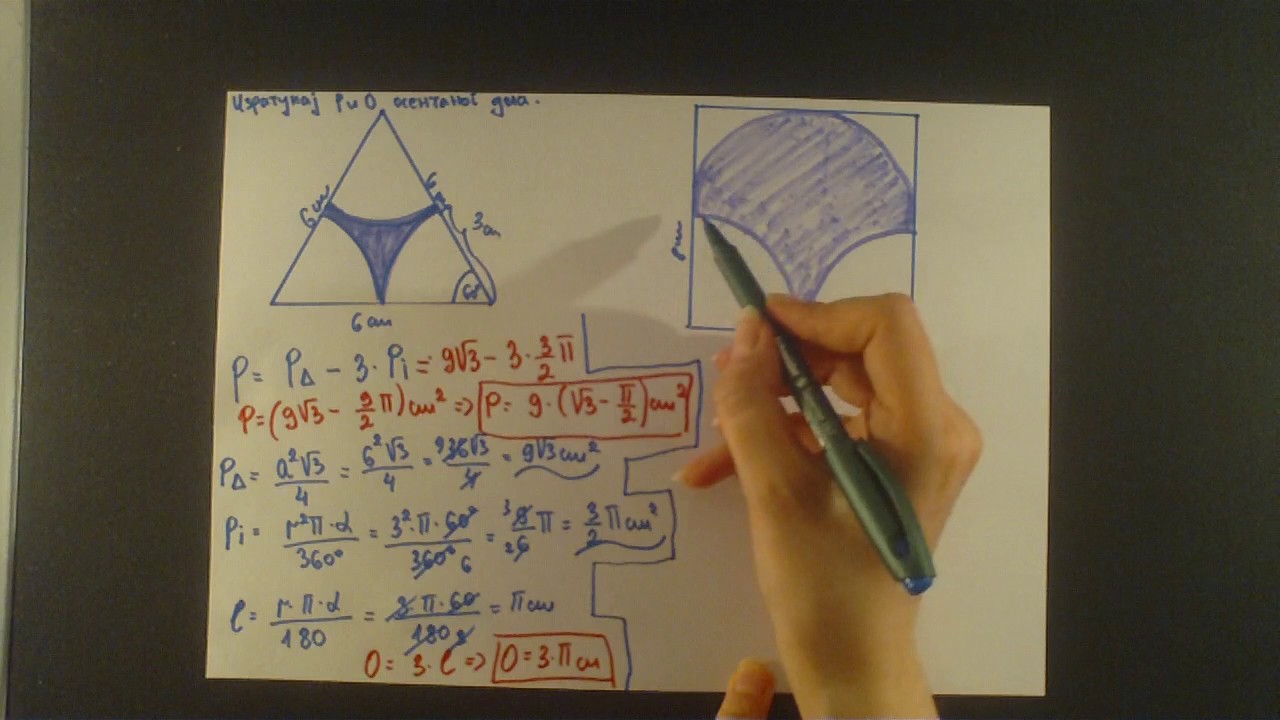 Израчунај P и O осенченог дела.
6cm
6cm
3cm
60°
6cm
P = P△ - 3·Pi = 9√3 - 3·3/2 π
P = (9√3 - 9/2 π) cm² => P = 9·(√3 - π/2) cm²
P△ = a²√3/4 = 6²√3/4 = 9 36√3/4 = 9√3 cm²
Pi = r²π·α/360° = 3²·π·60°/360° 6 = 3 9/2 6 π = 3/2 π cm²
l = r·π·α/180 = 3·π·60/180 3 = π cm
O = 3·l => O = 3·π cm